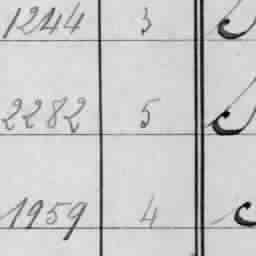 1244 3
2282 5
1959 4